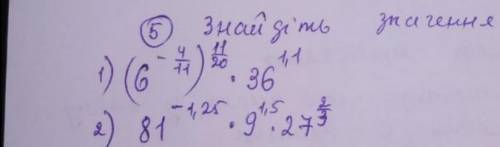 ⑤ Знайдіть значення
1) (6^{-4/11})^{11/20} · 36^{1,1}
2) 81^{-1,25} · 9^{1,5} · 27^{2/3}